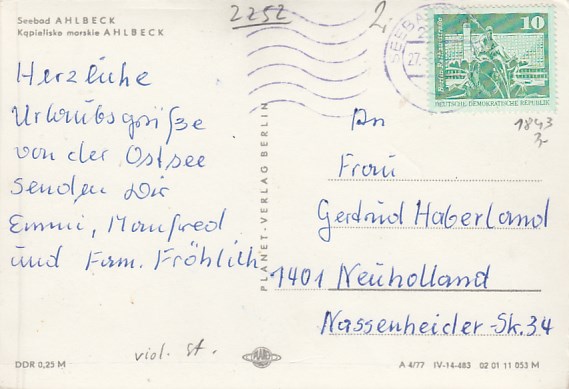 Seebad AHLBECK
Kąpielisko morskie AHLBECK
2252
2,
10
DEUTSCHE DEMOKRATISCHE REPUBLIK
1843
Herzliche
Urlaubsgrüße
von der Ostsee
senden Dir
Emmi, Manfred
und Fam. Fröhlich
PLANET-VERLAG BERLIN
An
Frau
Gertrud Haberland
1401 Neuholland
Nassenheider-Sk. 34
DDR 0,25 M
viol. St.
PLANET
A 4/77 IV-14-483 02 01 11 053 M